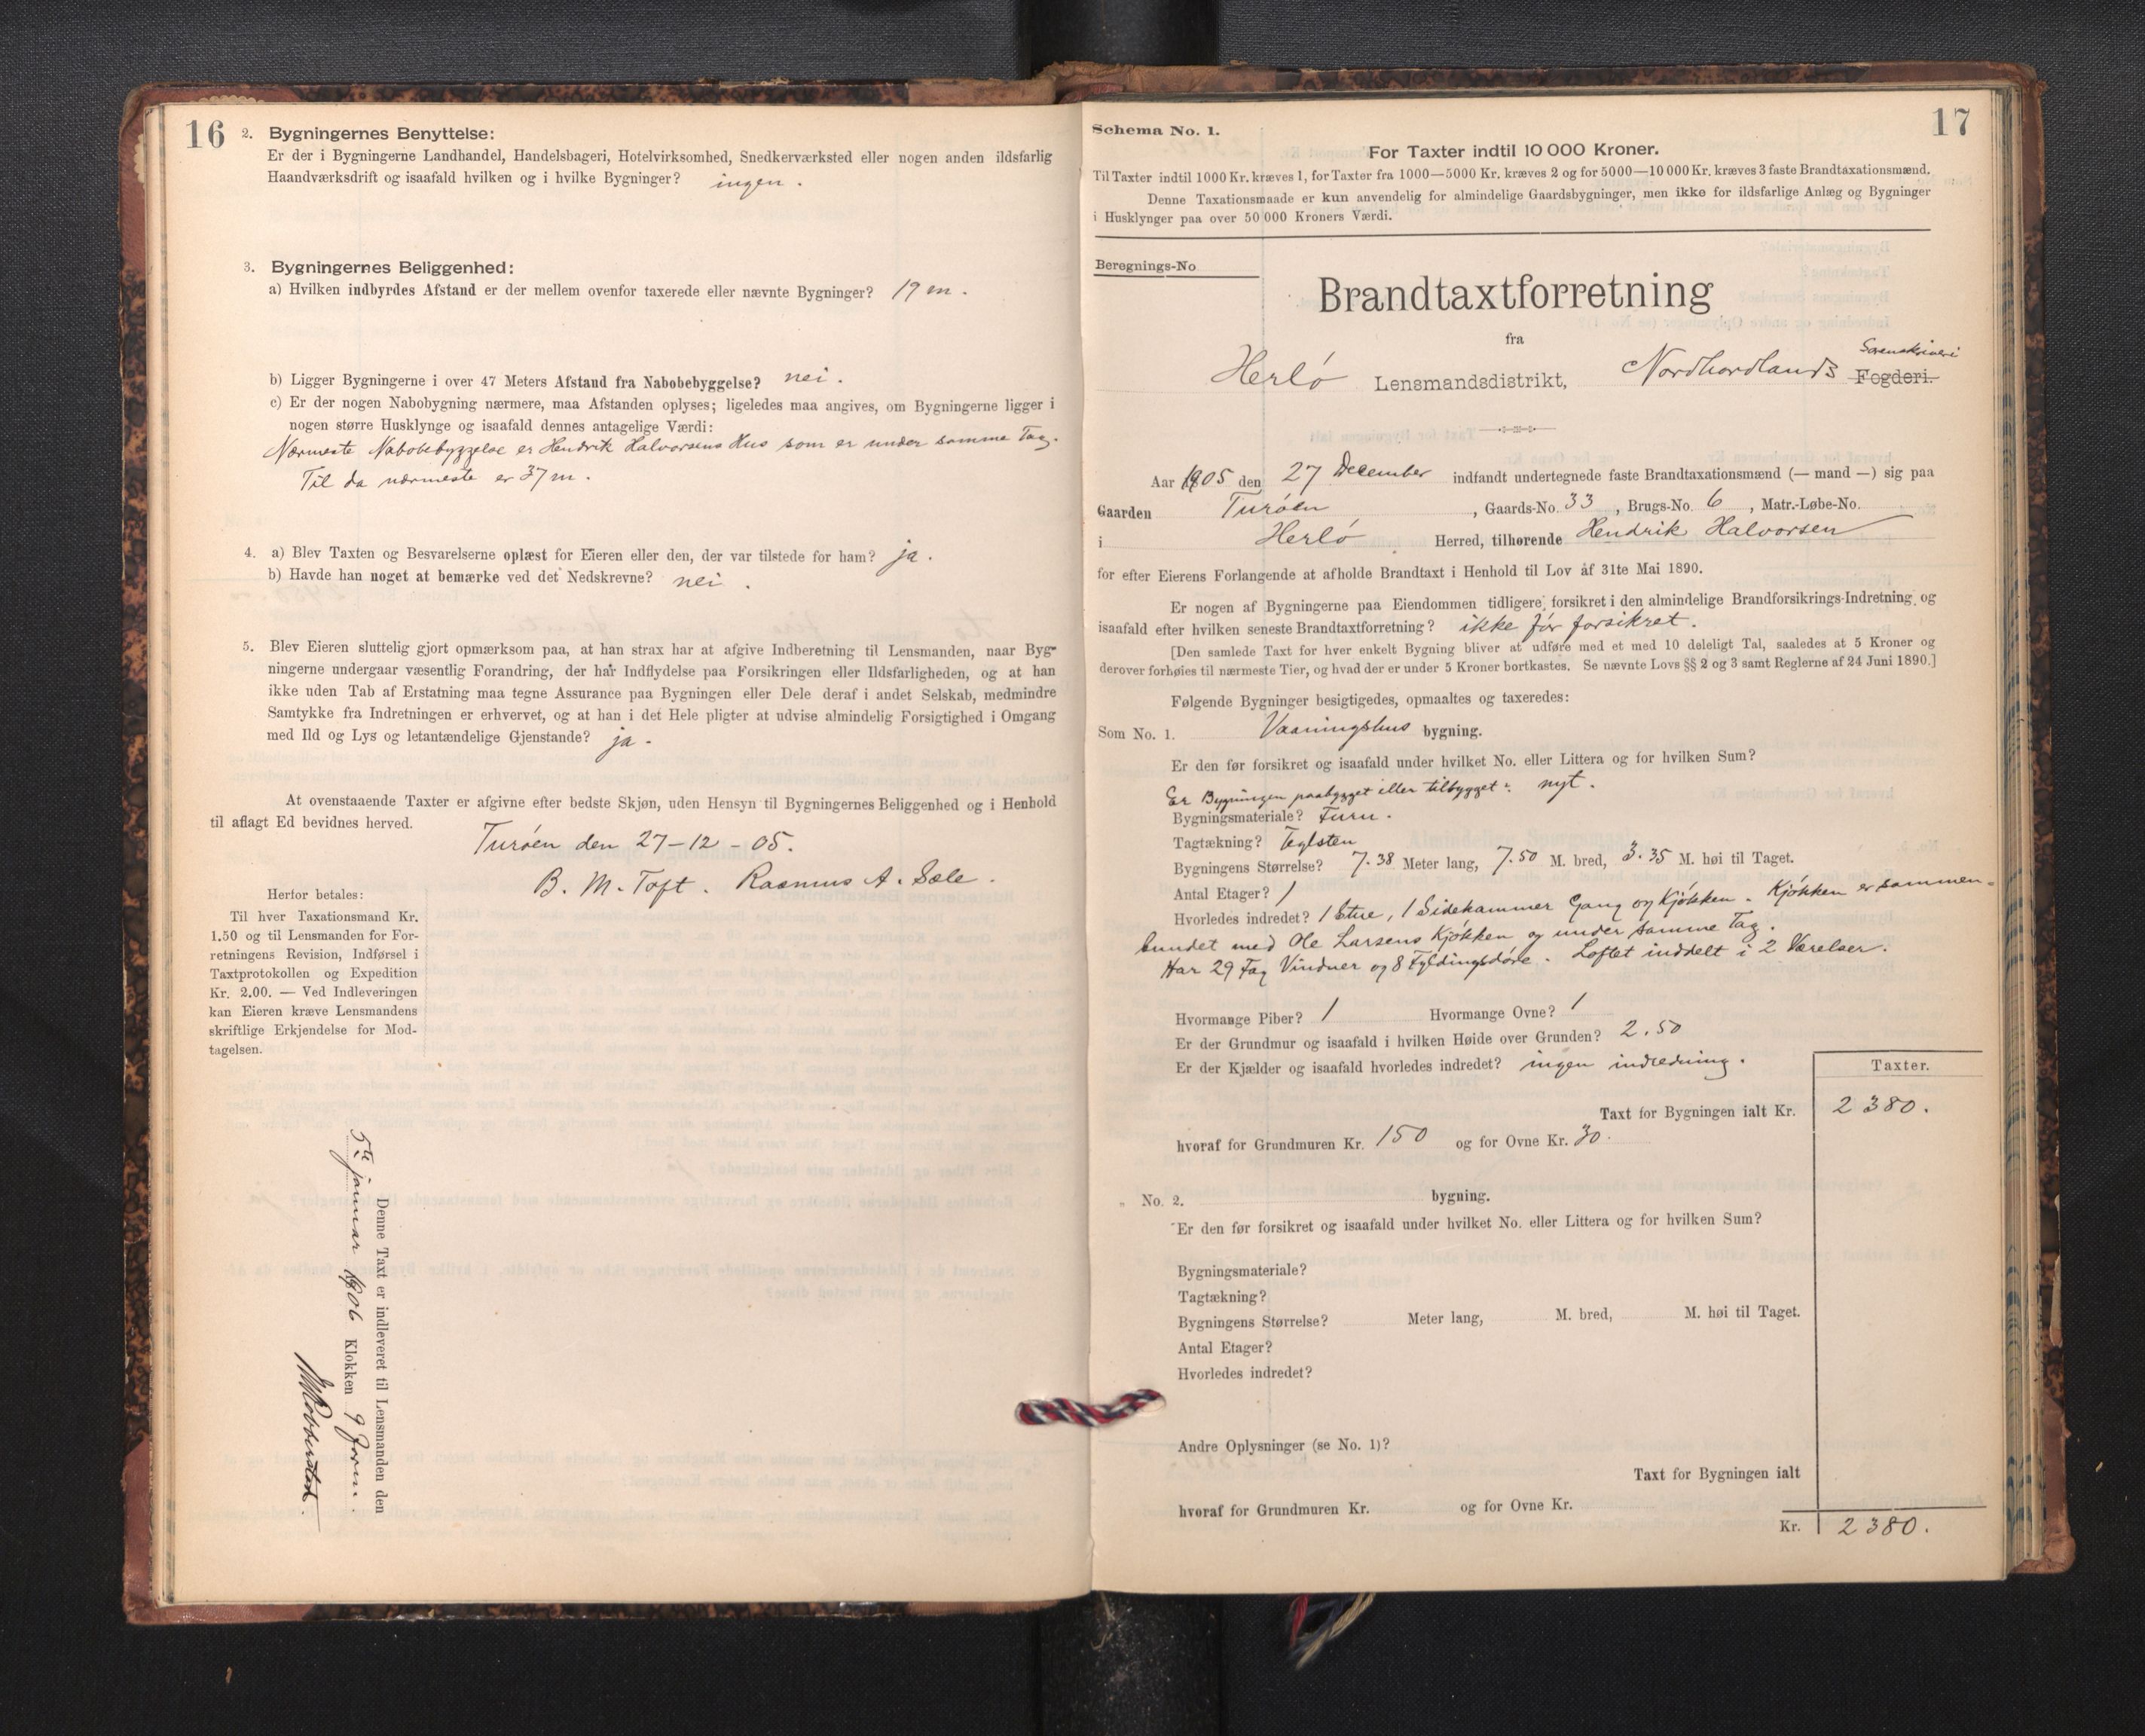 16
2. Bygningernes Benyttelse:
Er der i Bygningerne Landhandel, Handelsbageri, Hotelvirksomhed, Snedkerværksted eller nogen anden ildsfarlig
Haandværksdrift og isaafald hvilken og i hvilke Bygninger? ingen.
3. Bygningernes Beliggenhed:
a) Hvilken indbyrdes Afstand er der mellem ovenfor taxerede eller nævnte Bygninger? 19 m.
b) Ligger Bygningerne i over 47 Meters Afstand fra Nabobebyggelse? nei.
c) Er der nogen Nabobygning nærmere, maa Afstanden oplyses; ligeledes maa angives, om Bygningerne ligger i
nogen større Husklynge og isaafald dennes antagelige Værdi:
Nærmeste Nabobebyggelse er Hendrik Halvorsens Hus som er under samme Tag.
Til da nærmeste er 37 m.
4. a) Blev Taxten og Besvarelserne oplæst for Eieren eller den, der var tilstede for ham? ja.
b) Havde han noget at bemærke ved det Nedskrevne? nei.
5. Blev Eieren sluttelig gjort opmærksom paa, at han strax har at afgive Indberetning til Lensmanden, naar Byg-
ningerne undergaar væsentlig Forandring, der har Indflydelse paa Forsikringen eller Ildsfarligheden, og at han
ikke uden Tab af Erstatning maa tegne Assurance paa Bygningen eller Dele deraf i andet Selskab, medmindre
Samtykke fra Indretningen er erhvervet, og at han i det Hele pligter at udvise almindelig Forsigtighed i Omgang
med Ild og Lys og letantændelige Gjenstande? ja.
At ovenstaaende Taxter er afgivne efter bedste Skjøn, uden Hensyn til Bygningernes Beliggenhed og i Henhold
til aflagt Ed bevidnes herved.
Turöen den 27-12-05.
B. M. Toft. Rasmus A. Sæle.
Herfor betales:
Til hver Taxationsmand Kr.
1.50 og til Lensmanden for For-
retningens Revision, Indførsel i
Taxtprotokollen og Expedition
Kr. 2.00. — Ved Indleveringen
kan Eieren kræve Lensmandens
skriftlige Erkjendelse for Mod-
tagelsen.
Denne Taxt er indleveret til Lensmanden den
5te januar 1906 Klokken 9 Form.
17
Schema No. 1.
For Taxter indtil 10 000 Kroner.
Til Taxter indtil 1000 Kr. kræves 1, for Taxter fra 1000—5000 Kr. kræves 2 og for 5000—10 000 Kr. kræves 3 faste Brandtaxationsmænd.
Denne Taxationsmaade er kun anvendelig for almindelige Gaardsbygninger, men ikke for ildsfarlige Anlæg og Bygninger
i Husklynger paa over 50 000 Kroners Værdi.
Beregnings-No
Brandtaxtforretning
fra
Herlö Lensmandsdistrikt, Nordhordlands Sorenskriveri Fogderi.
Aar 1905 den 27 December indfandt undertegnede faste Brandtaxationsmænd (— mand —) sig paa
Gaarden Turöen, Gaards-No. 33, Brugs-No. 6, Matr.-Løbe-No.
i Herlö Herred, tilhørende Hendrik Halvorsen
for efter Eierens Forlangende at afholde Brandtaxt i Henhold til Lov af 31te Mai 1890.
Er nogen af Bygningerne paa Eiendommen tidligere forsikret i den almindelige Brandforsikrings-Indretning og
isaafald efter hvilken seneste Brandtaxtforretning? ikke för forsikret.
[Den samlede Taxt for hver enkelt Bygning bliver at udføre med et med 10 deleligt Tal, saaledes at 5 Kroner og
derover forhøies til nærmeste Tier, og hvad der er under 5 Kroner bortkastes. Se nævnte Lovs §§ 2 og 3 samt Reglerne af 24 Juni 1890.]
Følgende Bygninger besigtigedes, opmaaltes og taxeredes:
Som No. 1. Vaaningshus bygning.
Er den før forsikret og isaafald under hvilket No. eller Littera og for hvilken Sum?
Er Bygningen paabygget eller tilbygget: nyt.
Bygningsmateriale? Furu.
Tagtækning? Teglsten
Bygningens Størrelse? 7.38 Meter lang, 7.50 M. bred, 3.35 M. høi til Taget.
Antal Etager? 1
Hvorledes indredet? 1 Stue, 1 Sidekammer Gang og Kjökken. Kjökken er sammen-
bundet med Ole Larsens Kjökken og under samme Tag.
Har 29 Fag Vinduer og 8 Fyldingsdöre. Loftet inddelt i 2 Værelser.
Hvormange Piber? 1 Hvormange Ovne? 1
Er der Grundmur og isaafald i hvilken Høide over Grunden? 2.50
Er der Kjælder og isaafald hvorledes indredet? ingen indredning.
Taxter.
Taxt for Bygningen ialt Kr. 2380.
hvoraf for Grundmuren Kr. 150 og for Ovne Kr. 30.
„ No. 2. bygning.
Er den før forsikret og isaafald under hvilket No. eller Littera og for hvilken Sum?
Bygningsmateriale?
Tagtækning?
Bygningens Størrelse? Meter lang, M. bred, M. høi til Taget.
Antal Etager?
Hvorledes indredet?
Andre Oplysninger (se No. 1)?
Taxt for Bygningen ialt
hvoraf for Grundmuren Kr. og for Ovne Kr.
Kr. 2380.